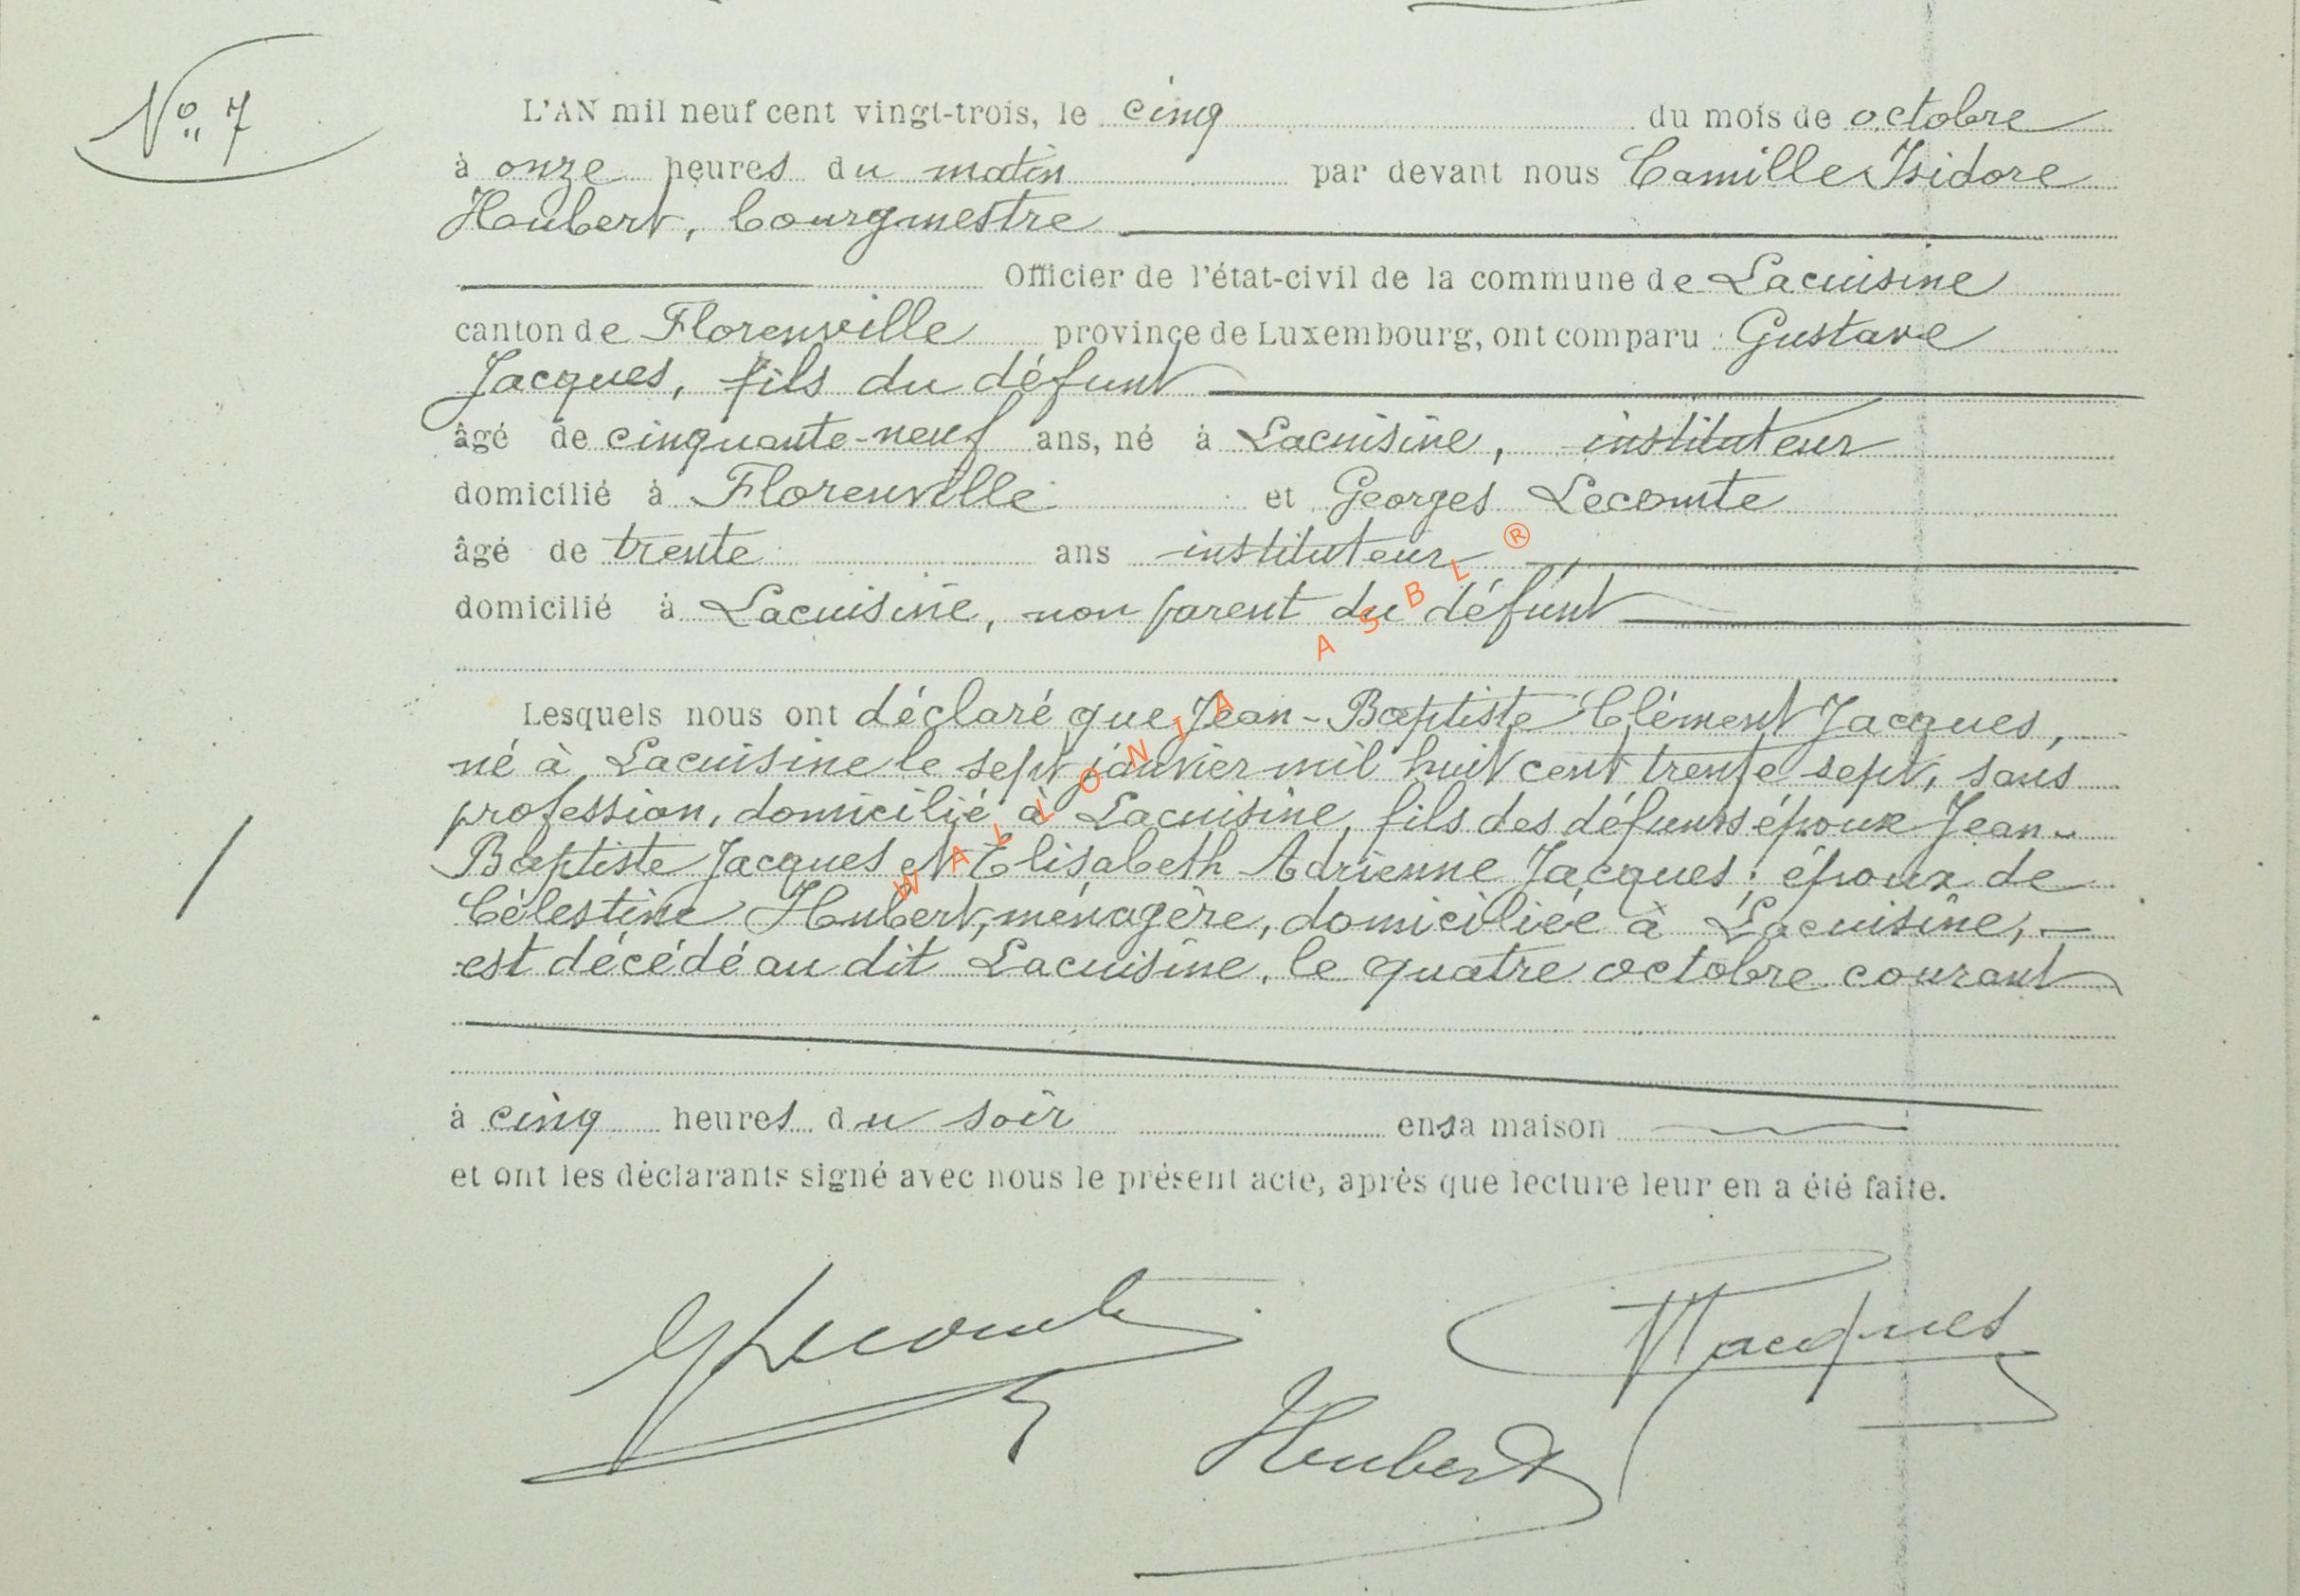 N° 7
L'AN mil neuf cent vingt-trois, le cinq du mois de octobre
à onze heures du matin par devant nous Camille Isidore
Houbert, bourgmestre
Officier de l'état-civil de la commune de Lacuisine
canton de Florenville province de Luxembourg, ont comparu Gustave
Jacques, fils du défunt
âgé de cinquante-neuf ans, né à Lacuisine, instituteur
domicilié à Florenville et Georges Lecomte
âgé de trente ans instituteur
domicilié à Lacuisine, non parent du défunt
Lesquels nous ont déclaré que Jean-Baptiste Clément Jacques,
né à Lacuisine le sept janvier mil huit cent trente sept, sans
profession, domicilié à Lacuisine, fils des défunts époux Jean-
Baptiste Jacques et Elisabeth Adrienne Jacques; époux de
Célestine Hubert, ménagère, domiciliée à Lacuisine, -
est décédé au dit Lacuisine, le quatre octobre courant
à cinq heures du soir en sa maison
et ont les déclarants signé avec nous le présent acte, après que lecture leur en a été faite.
GLecomte
Jacques
Houbert
WALLONIA ASBL ®